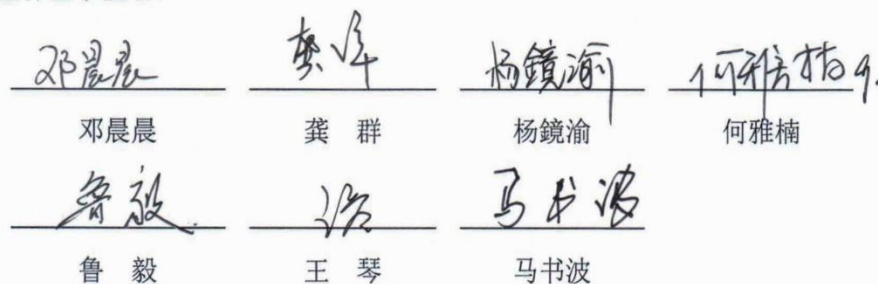 邓晨晨 龚群 杨鏡渝 何雅楠
邓晨晨 龚 群 杨鏡渝 何雅楠
鲁毅 马书波
鲁 毅 王 琴 马书波